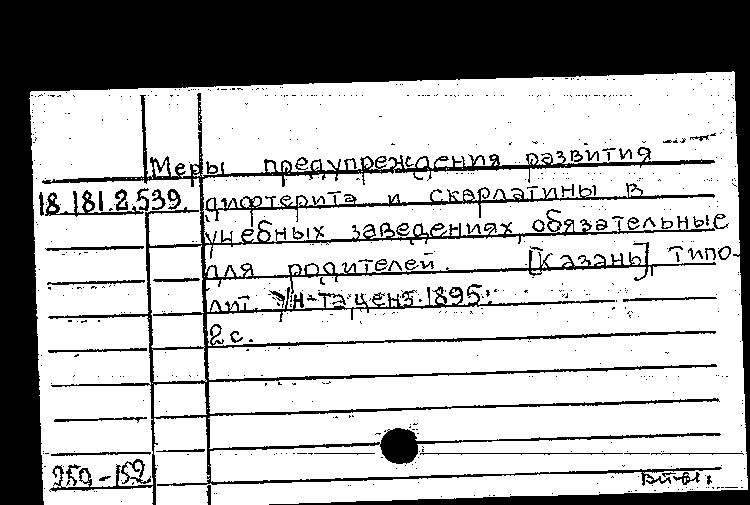 Меры предупреждения развития
18.181.2.539. дифтерита и скарлатины в
учебных заведениях, обязательные
для родителей. [Казань], типо-
лит. Ун-та, ценз. 1895.
2 с.
259-152